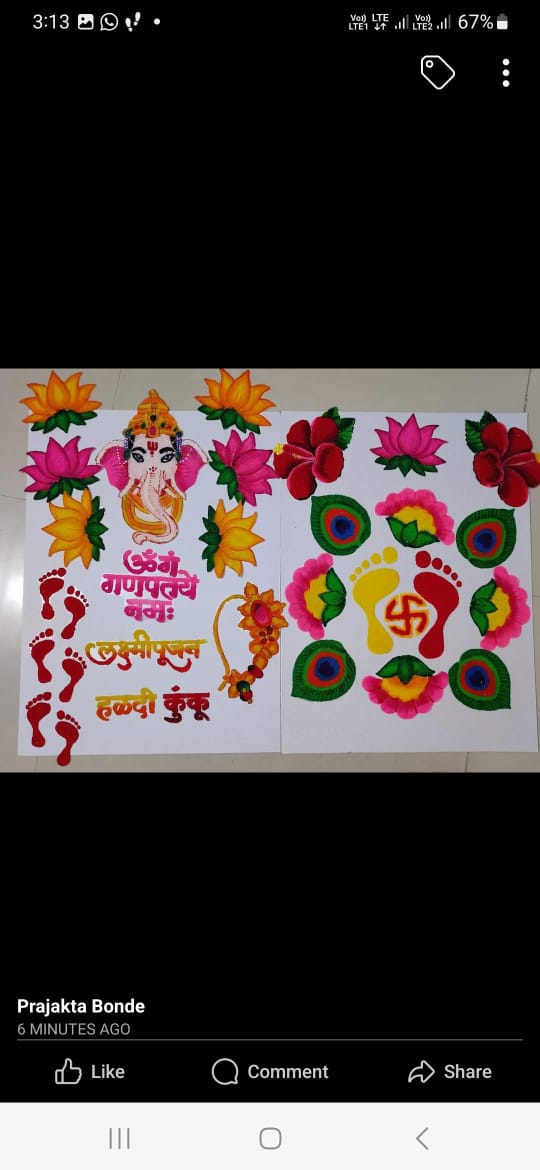 3:13
Vo)) LTE Vo)) 67%
LTE1 LTE2
ॐ गं
गणपतये
नमः
लक्ष्मीपूजन
हळदी कुंकू
Prajakta Bonde
6 MINUTES AGO
Like Comment Share